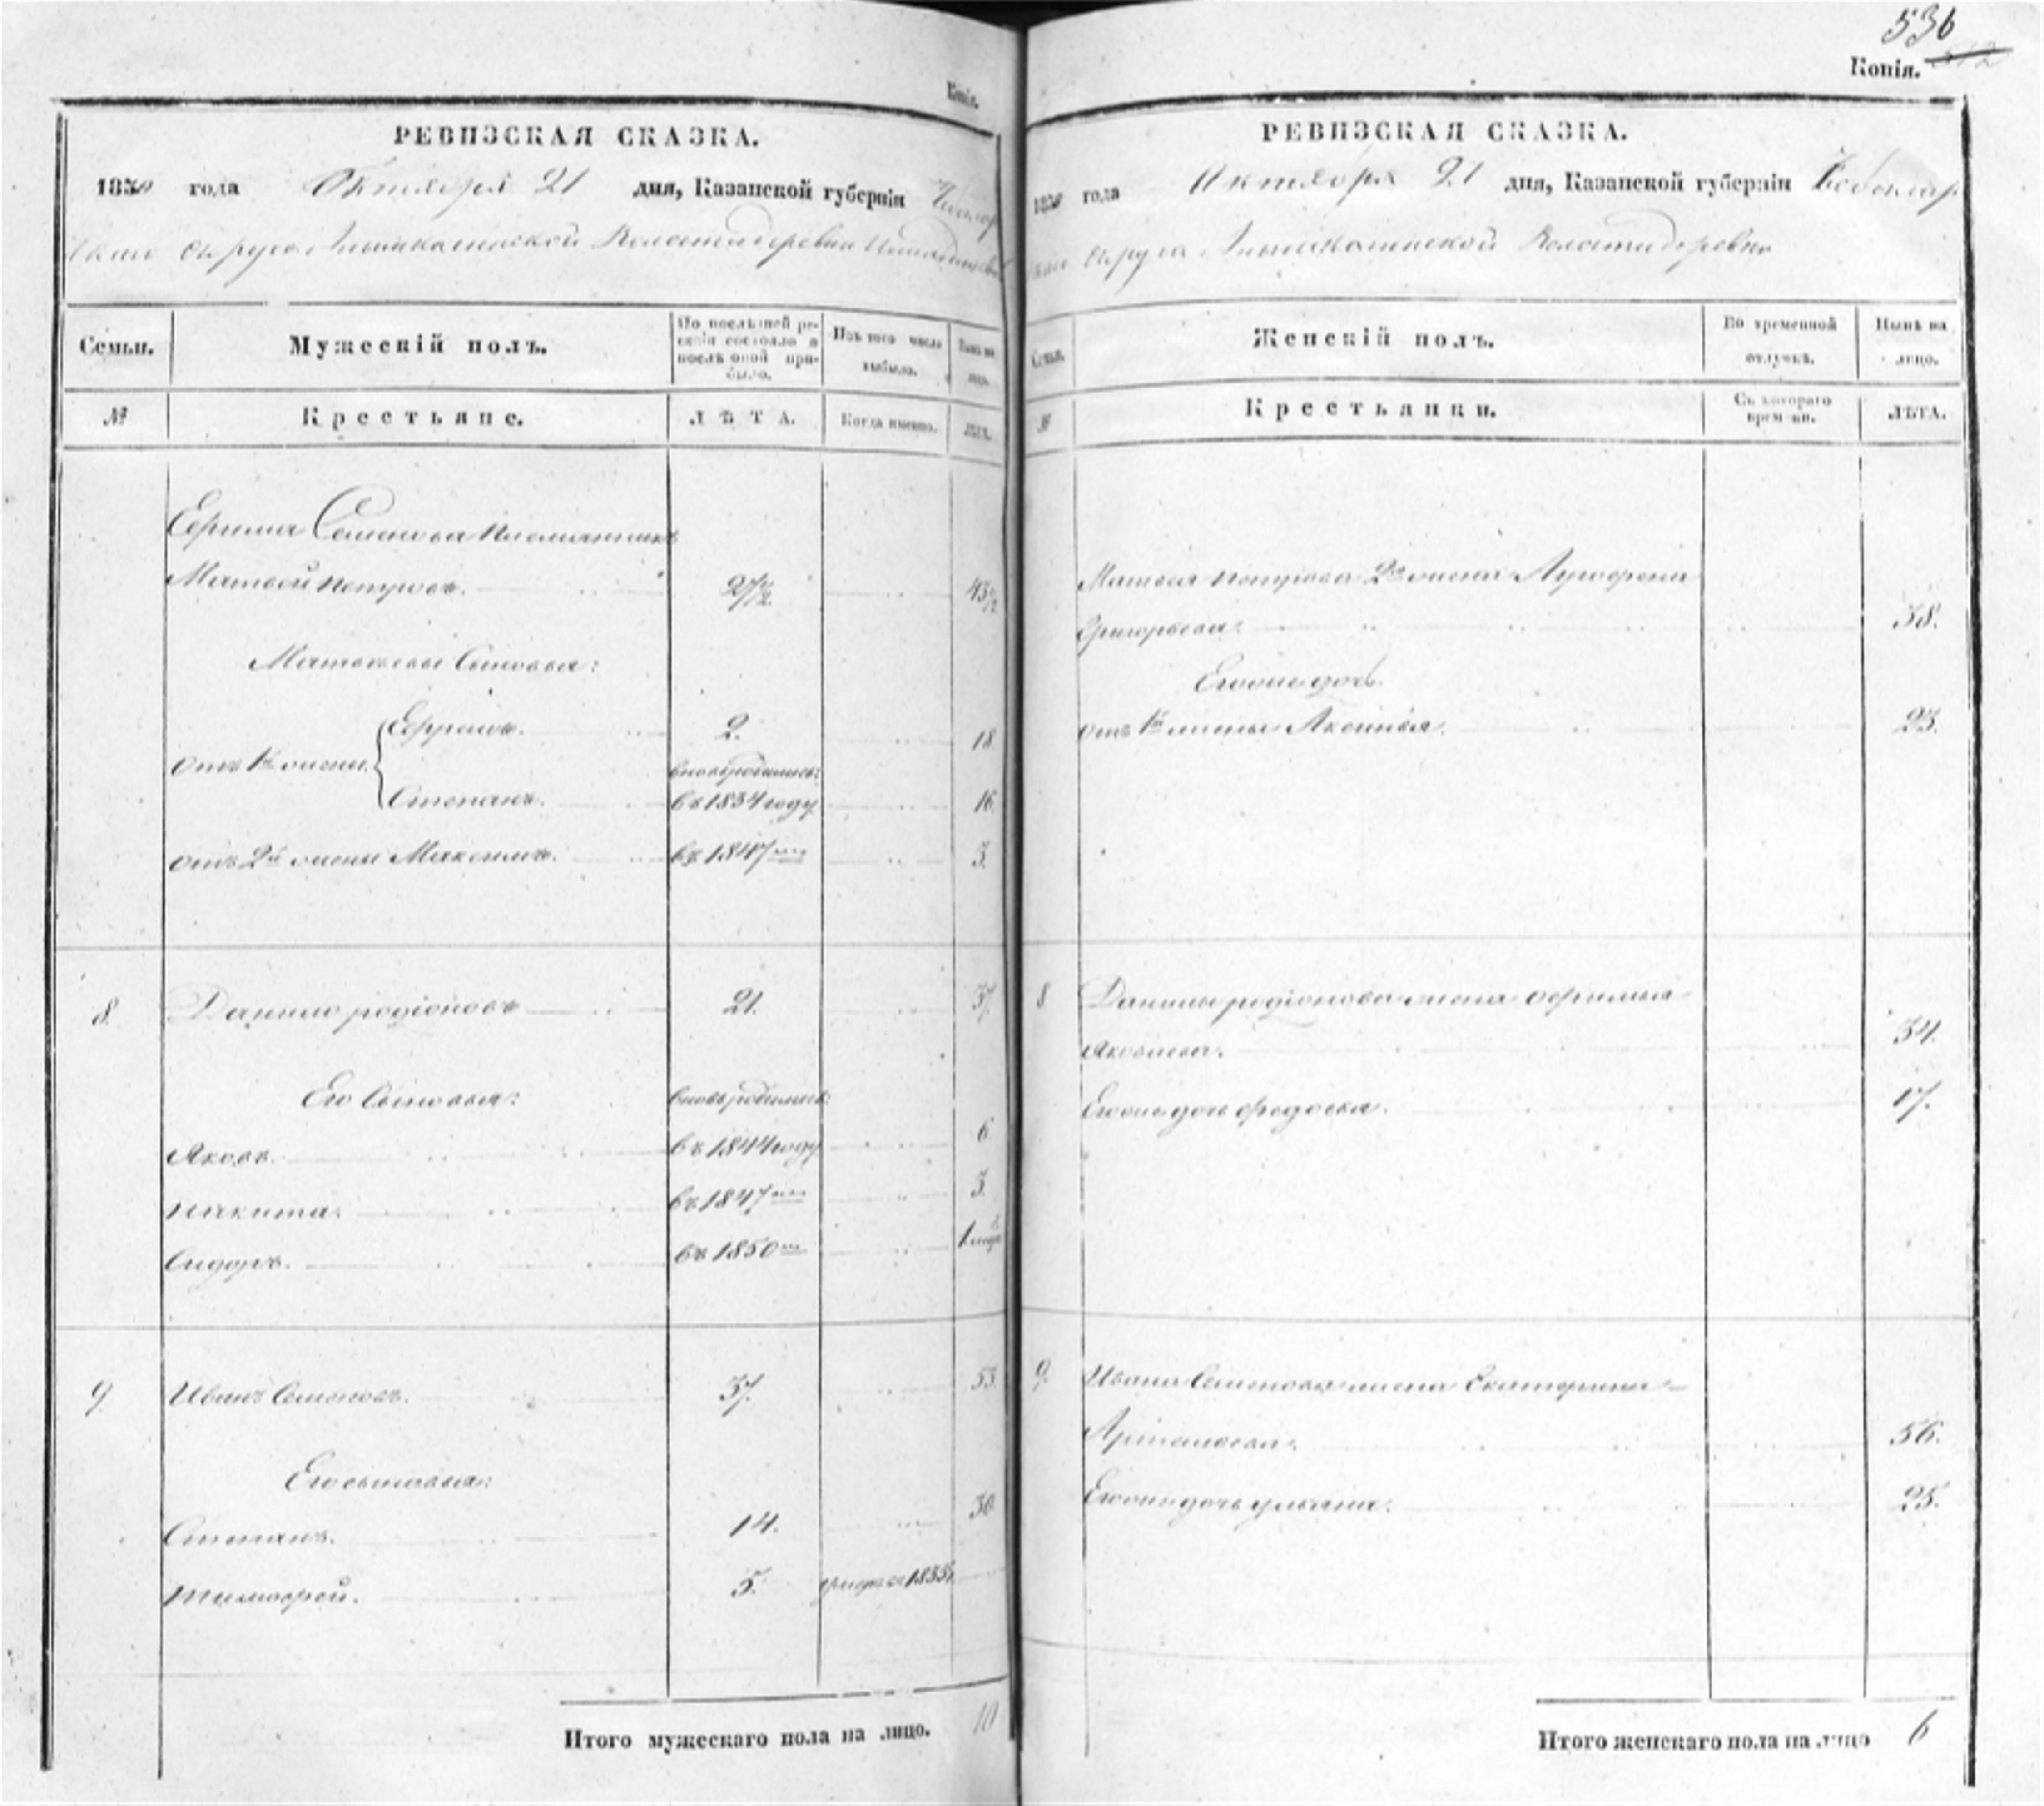 Копія.
РЕВИЗСКАЯ СКАЗКА.
1850 года Октября 21 дня, Казанской губерніи
округа Волости деревни
Семьи.
Мужескій полъ.
По послѣдней ре-
визіи состояло и
послѣ оной при-
было.
Изъ того числа
выбыло.
Нынѣ на
лицо.
№
Крестьяне.
ЛѢТА.
Когда именно.
ЛѢТА.
Семенова племянникъ
Матвей Петровъ. 27 1/2. 43 1/2
Матвеевы Сыновья:
Ефремъ. 2. 18
отъ 1й жены вновь родились:
Степанъ. въ 1834 году 16
отъ 2й жены Максимъ. въ 1847 3.
8 Данило родіоновъ 21. 37.
Его Сыновья: вновь родились:
Яковъ. въ 1844 году 6
Никита. въ 1847 3.
Сидоръ. въ 1850
9. Иванъ Семеновъ. 37. 53.
Его сыновья:
Степанъ. 14. 30
Тимофей. 5. 1835
Итого мужескаго пола на лицо. 10
536
Копія.
РЕВИЗСКАЯ СКАЗКА.
1850 года Октября 21 дня, Казанской губерніи Чебоксар
округа Волости деревни
Семьи.
Женскій полъ.
Во временной
отлучкѣ.
Нынѣ на
лицо.
№
Крестьянки.
Съ котораго
врем-ни.
ЛѢТА.
Матвея Петрова 2я жена
Григорьева. 38.
Егоже дочь
отъ 1й жены Аксинья. 23.
8 Данилы родіонова жена
Яковлева. 34.
Егоже дочь Федосья. 17.
9. Ивана Семенова жена Екатерина
56.
Егоже дочь Ульяна. 25.
Итого женскаго пола на лицо 6